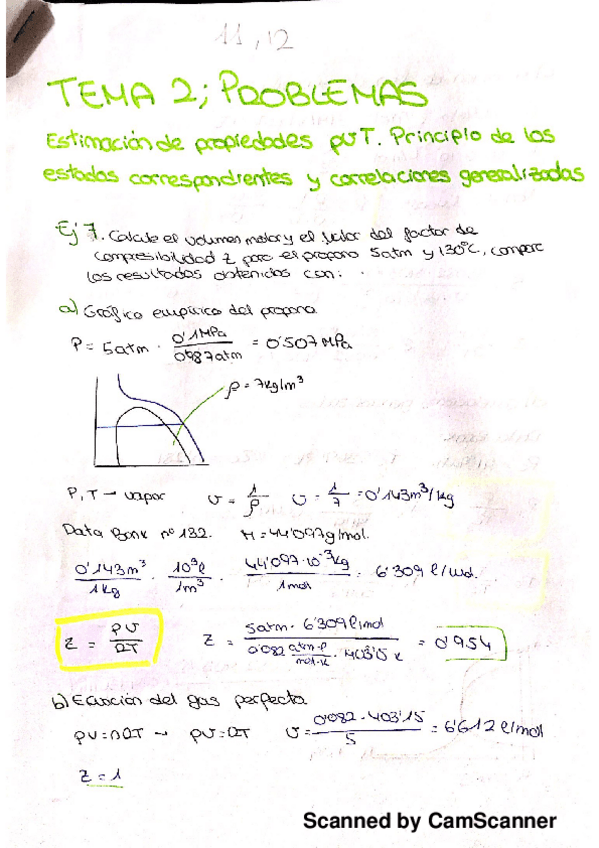 11,12
TEMA 2; PROBLEMAS
Estimación de propiedades pvT. Principio de los
estados correspondientes y correlaciones generalizadas
Ej 7. Calcule el volumen molar y el valor del factor de
compresibilidad z para el propano 5atm y 130°C, compare
los resultados obtenidos con:
a) Gráfico empírico del propano
P = 5atm · 0'1MPa / 0'987atm = 0'507 MPa
ρ = 7kg/m³
P, T → vapor v = 1/ρ v = 1/7 = 0'143m³/kg
Data Bank nº 132. M = 44'097g/mol.
0'143m³/1kg · 10³l/1m³ · 44'097·10⁻³kg/1mol = 6'309 l/mol.
z = pv/RT z = 5atm · 6'309l/mol / 0'082 atm·l/mol·K · 403'15 K = 0'954
b) Ecuación del gas perfecto
pV=nRT → pv=RT v = 0'082 · 403'15 / 5 = 6'612 l/mol
z = 1
Scanned by CamScanner